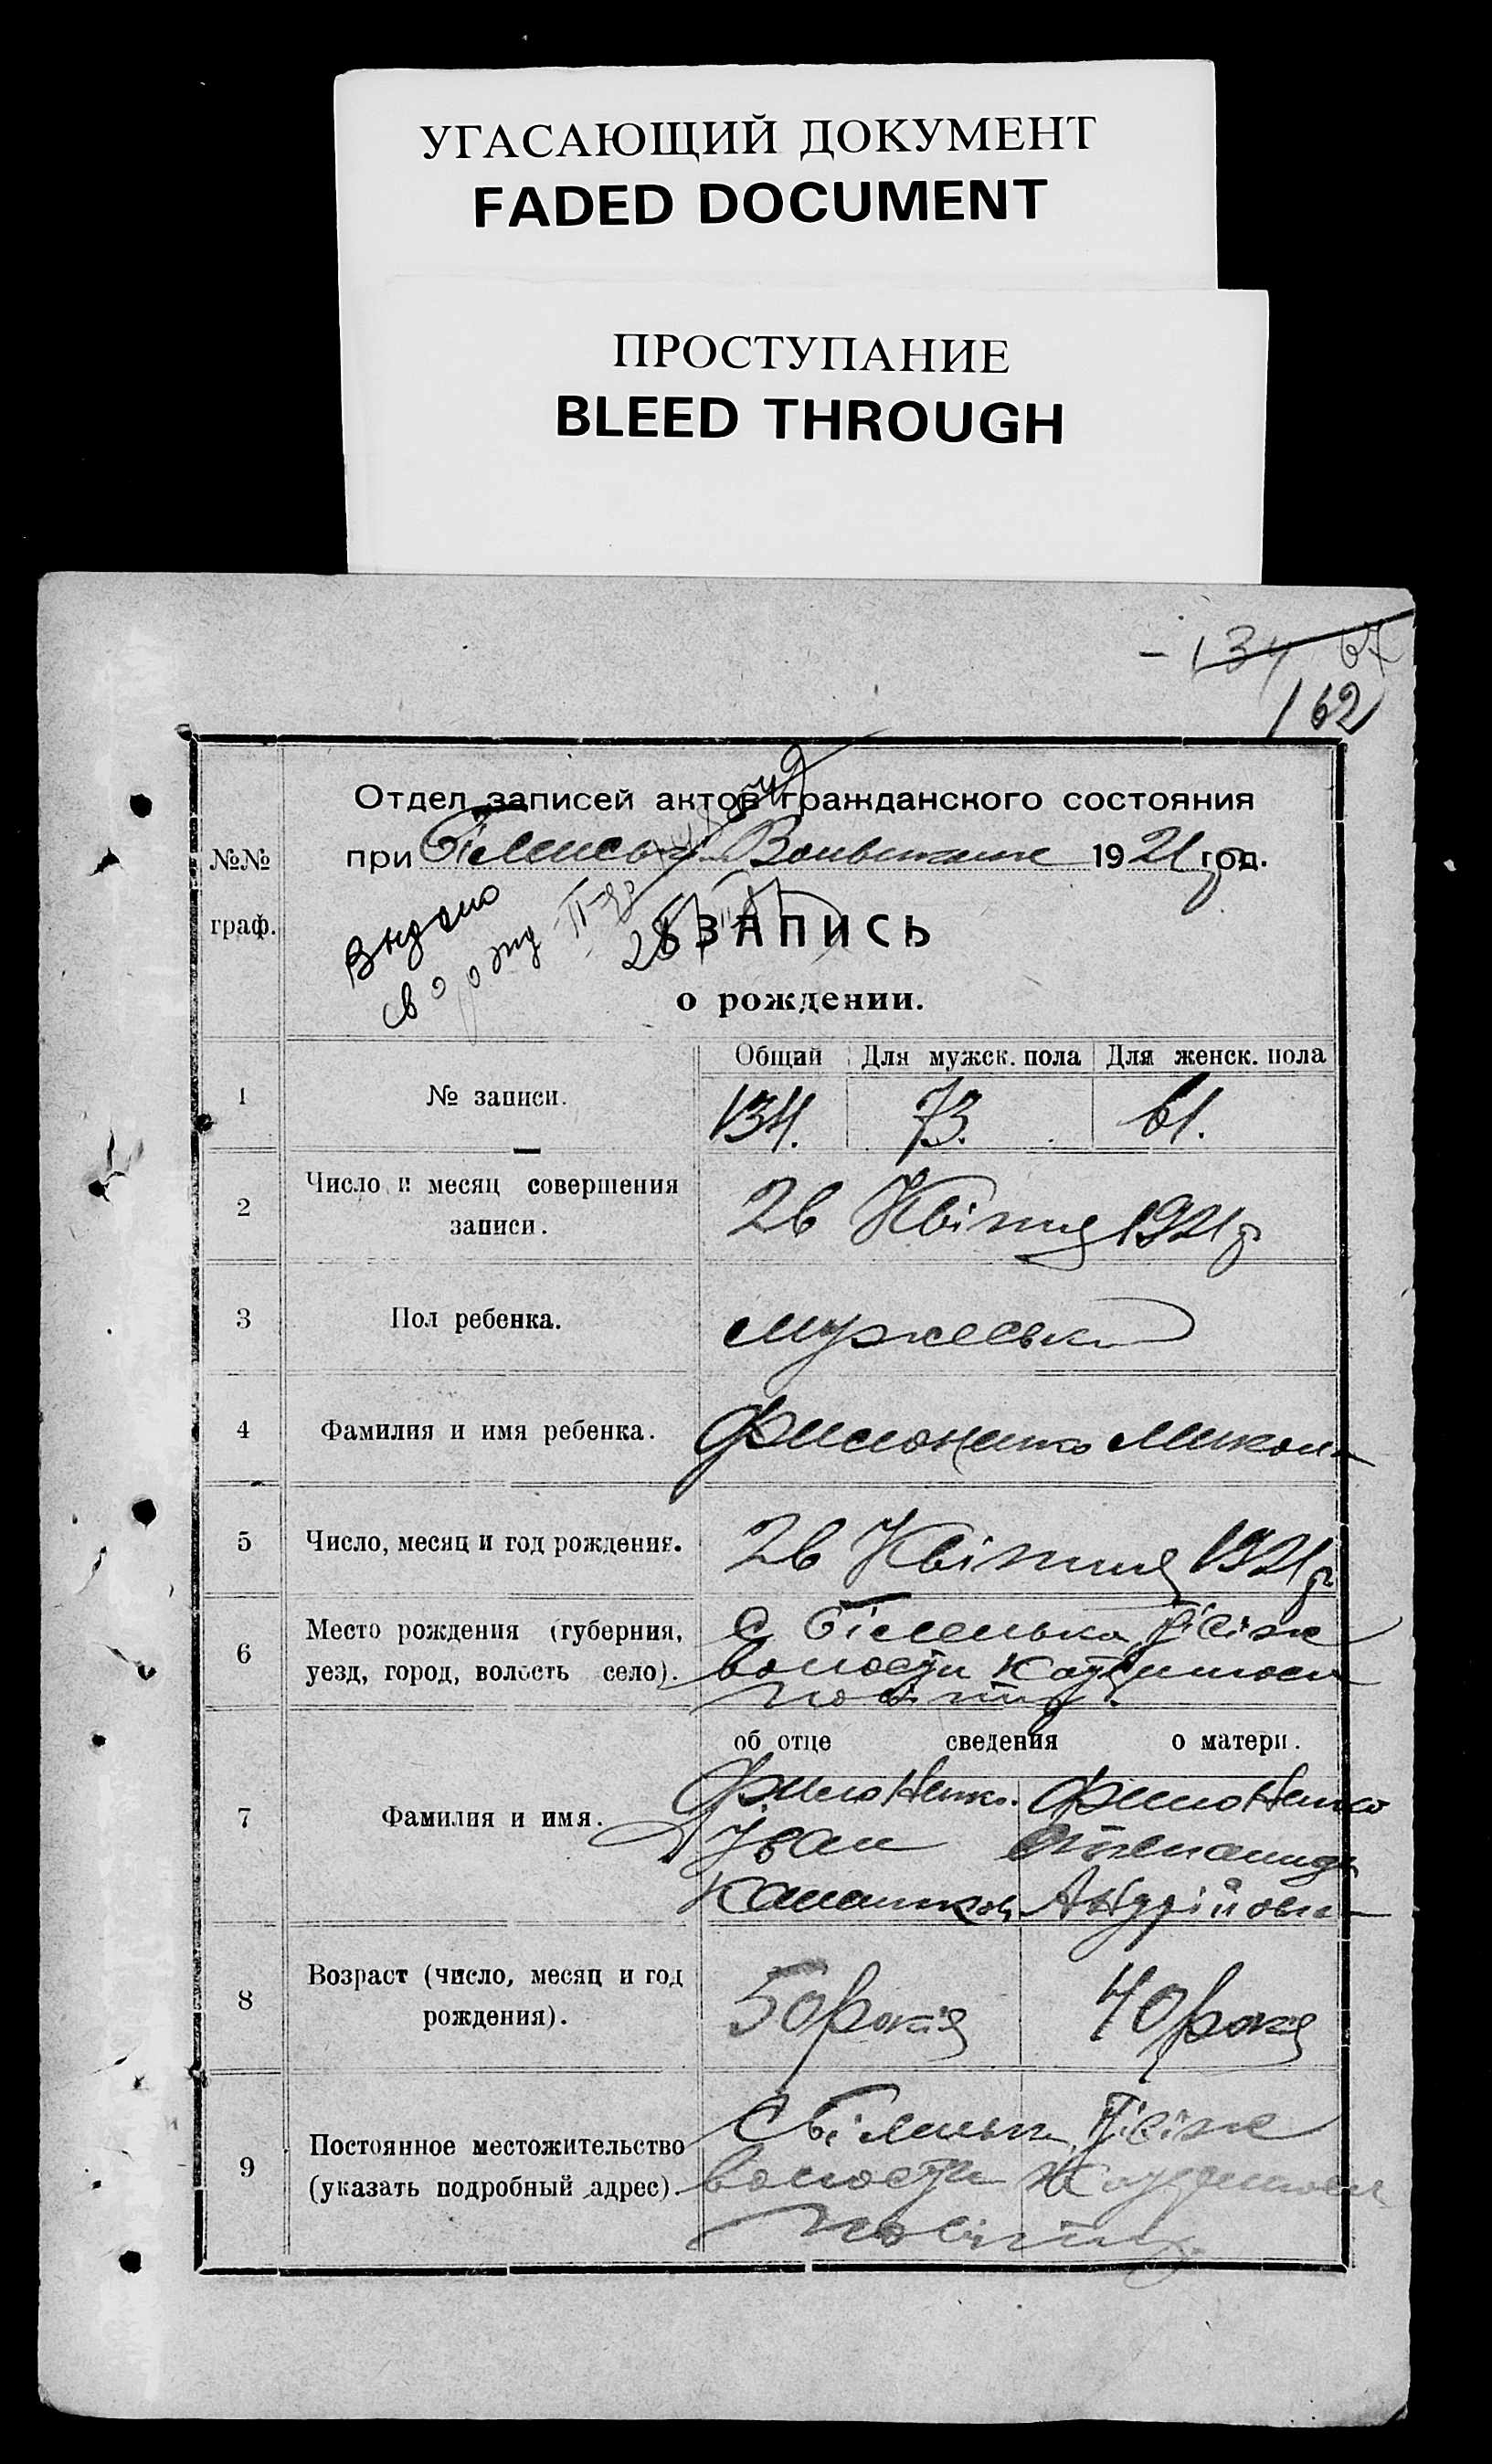 УГАСАЮЩИЙ ДОКУМЕНТ
FADED DOCUMENT
ПРОСТУПАНИЕ
BLEED THROUGH
134 67
162
Отдел записей актов гражданского состояния
при 1921 год.
№№
граф.
Выдано
ЗАПИСЬ
о рождении.
Общий Для мужск. пола Для женск. пола
1 № записи. 134. 73. 61.
2 Число и месяц совершения
записи. 26 Квітня 1921 р
3 Пол ребенка. мужеськ
4 Фамилия и имя ребенка. Филоненко Микола
5 Число, месяц и год рождения. 26 Квітня 1921 р
6 Место рождения (губерния, С Біленька
уезд, город, волость село). волости
повіту.
об отце сведения о матери.
Филоненко Филоненко
7 Фамилия и имя. Іван
Андріівна
8 Возраст (число, месяц и год
рождения). 50 років 40 років
С Біленьк
9 Постоянное местожительство
(указать подробный адрес). волости
повіту